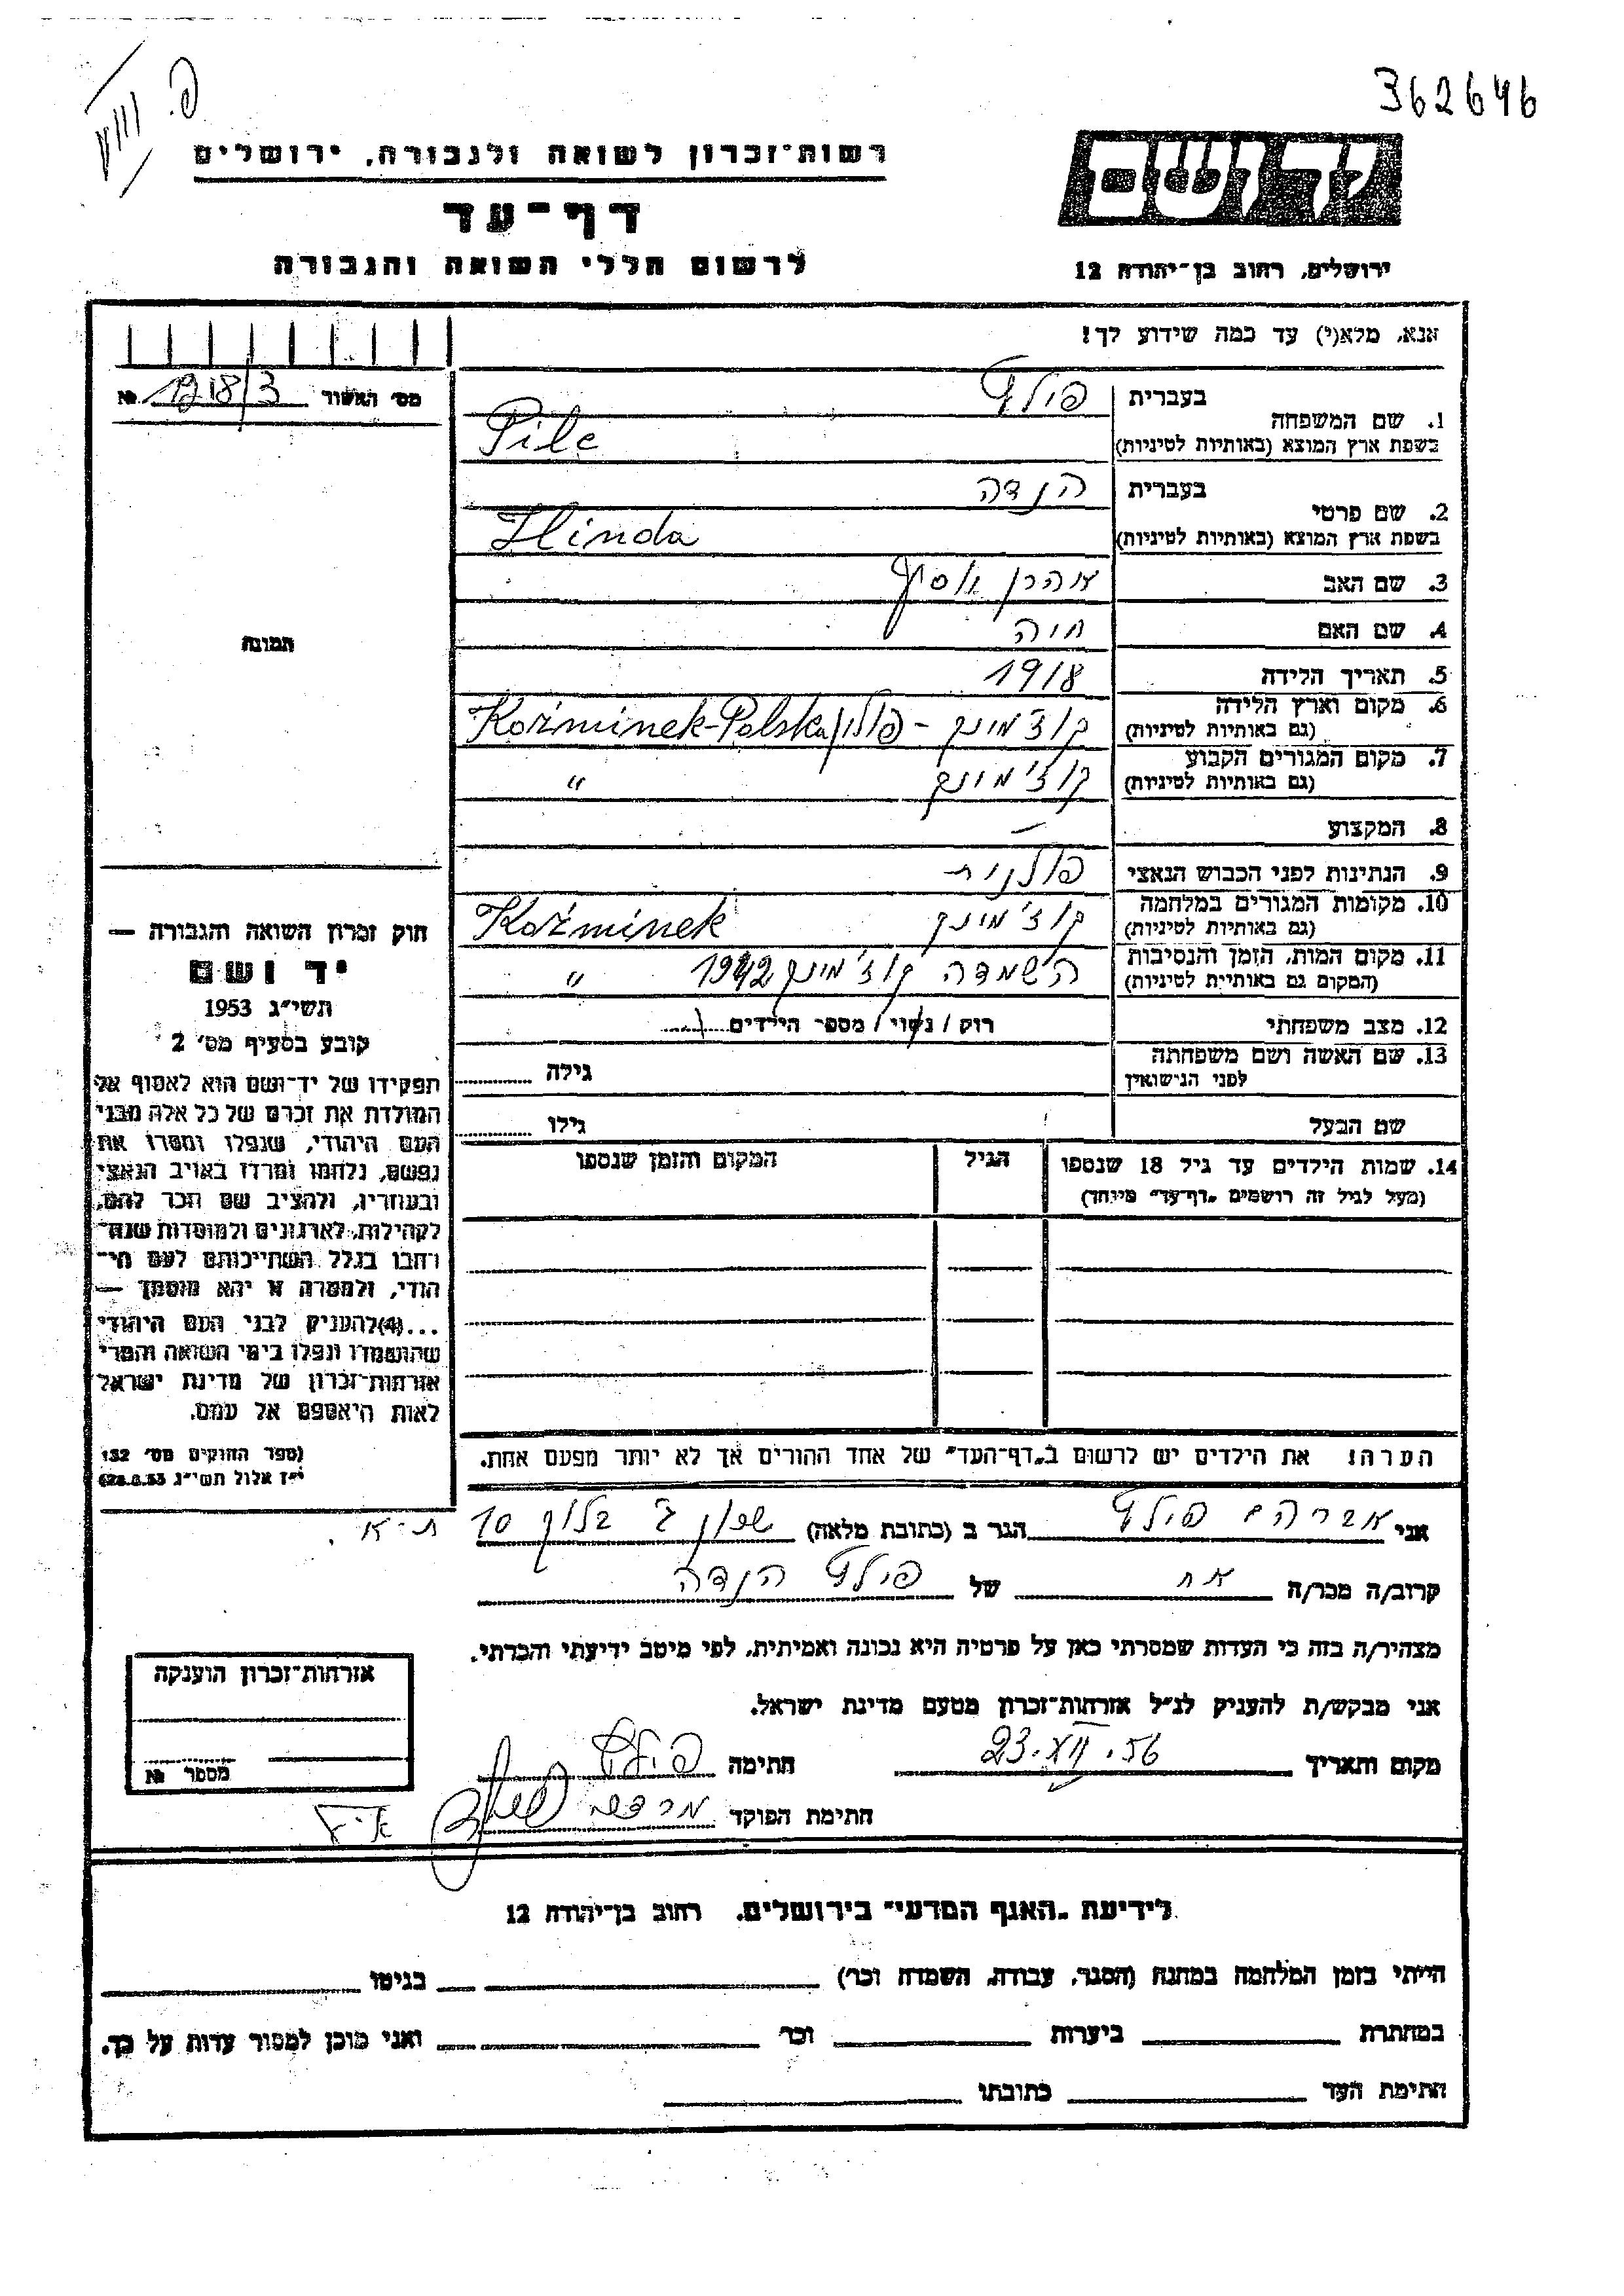 362646
פ. VIII
רשות־זכרון לשואה ולגבורה, ירושלים
דף־עד
לרשום חללי השואה והגבורה
יד ושם
ירושלים, רחוב בן־יהודה 12
אנא, מלא(י) עד כמה שידוע לך!
מס׳ האשור 1218/3 №
1. שם המשפחה בעברית פילץ
בשפת ארץ המוצא (באותיות לטיניות) Pilc
2. שם פרטי בעברית הנדה
בשפת ארץ המוצא (באותיות לטיניות) Hinda
3. שם האב אהרן יוסף
4. שם האם חיה
5. תאריך הלידה 1918
6. מקום וארץ הלידה (גם באותיות לטיניות) קוז׳מינק - פולין Koźminek-Polska
7. מקום המגורים הקבוע (גם באותיות לטיניות) קוז׳מינק "
8. המקצוע —
9. הנתינות לפני הכבוש הנאצי פולנית
10. מקומות המגורים במלחמה (גם באותיות לטיניות) קוז׳מינק Koźminek
11. מקום המות, הזמן והנסיבות (המקום גם באותיות לטיניות) השמדה קוז׳מינק 1942 "
12. מצב משפחתי רוק / נשוי / מספר הילדים
13. שם האשה ושם משפחתה לפני הנישואין גילה
שם הבעל גילו
14. שמות הילדים עד גיל 18 שנספו הגיל המקום והזמן שנספו
(מעל לגיל זה רושמים „דף־עד״ מיוחד)
הערה: את הילדים יש לרשום ב„דף־העד״ של אחד ההורים אך לא יותר מפעם אחת.
תמונה
חוק זכרון השואה והגבורה —
יד ושם
תשי״ג 1953
קובע בסעיף מס׳ 2
תפקידו של יד־ושם הוא לאסוף אל
המולדת את זכרם של כל אלה מבני
העם היהודי, שנפלו ומסרו את
נפשם, נלחמו ומרדו באויב הנאצי
ובעוזריו, ולהציב שם וזכר להם,
לקהילות, לארגונים ולמוסדות שנח־
רבו בגלל השתייכותם לעם הי־
הודי, ולמטרה זו יהא מוסמך —
...(4) להעניק לבני העם היהודי
שהושמדו ונפלו בימי השואה והמרי
אזרחות־זכרון של מדינת ישראל
לאות היאספם אל עמם.
(ספר החוקים מס׳ 132
י״ז אלול תשי״ג 28.8.53)
אני אברהם פילץ הגר ב (כתובת מלאה) שכון ג בלוק 10 ת-א.
קרוב/ה מכר/ה אח של פילץ הנדה
מצהיר/ה בזה כי העדות שמסרתי כאן על פרטיה היא נכונה ואמיתית, לפי מיטב ידיעתי והכרתי.
אני מבקש/ת להעניק לנ״ל אזרחות־זכרון מטעם מדינת ישראל.
מקום ותאריך 23.XII.56 חתימה פילץ
חתימת הפוקד מרדכי
אזרחות־זכרון הוענקה
מספר №
לידיעת „האגף המדעי״ בירושלים, רחוב בן־יהודה 12
הייתי בזמן המלחמה במחנה (הסגר, עבודה, השמדה וכו׳) בגיטו
במחתרת ביערות וכו׳ ואני מוכן למסור עדות על כך.
חתימת העד כתובתו